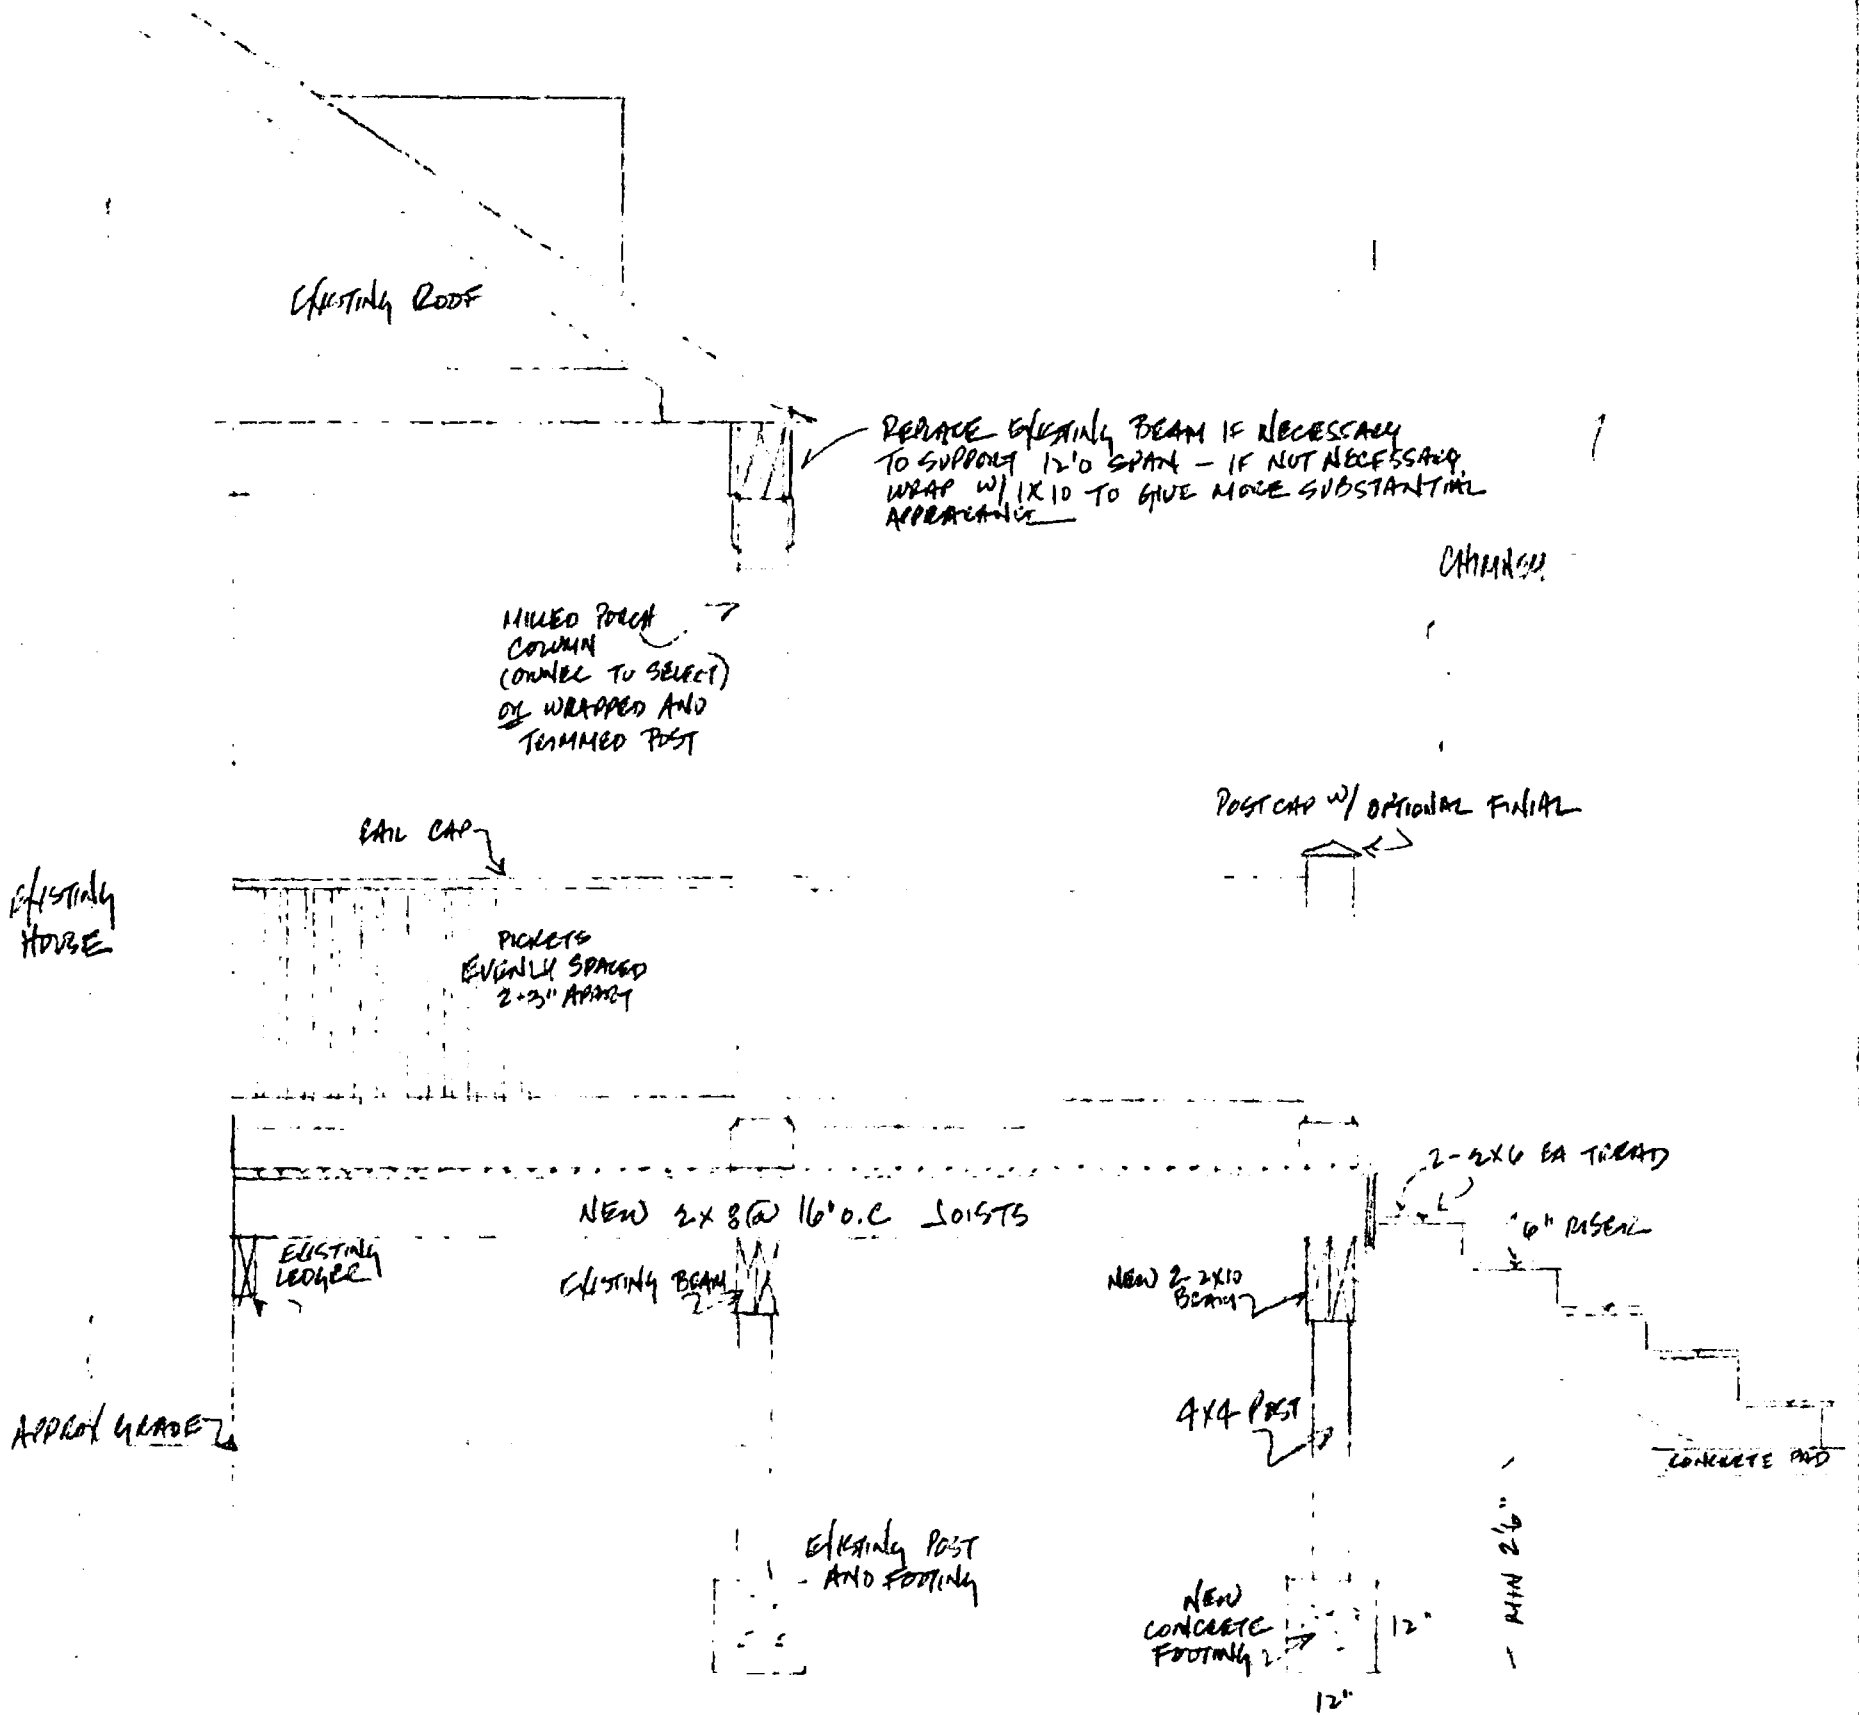 EXISTING ROOF
REPLACE EXISTING BEAM IF NECESSARY
TO SUPPORT 12'0 SPAN – IF NOT NECESSARY,
WRAP W/ 1X10 TO GIVE MORE SUBSTANTIAL
APPEARANCE
MILLED PORCH
COLUMN
(OWNER TO SELECT)
OR WRAPPED AND
TRIMMED POST
POST CAP W/ OPTIONAL FINIAL
RAIL CAP
EXISTING
HOUSE
PICKETS
EVENLY SPACED
2-3" APART
2-2X6 EA TREAD
6" RISER
NEW 2X8 @ 16" O.C JOISTS
EXISTING
LEDGER
EXISTING BEAM
NEW 2-2X10
BEAM
4X4 POST
APPROX GRADE
CONCRETE PAD
MIN 2'6"
EXISTING POST
AND FOOTING
NEW
CONCRETE
FOOTING
12"
12"